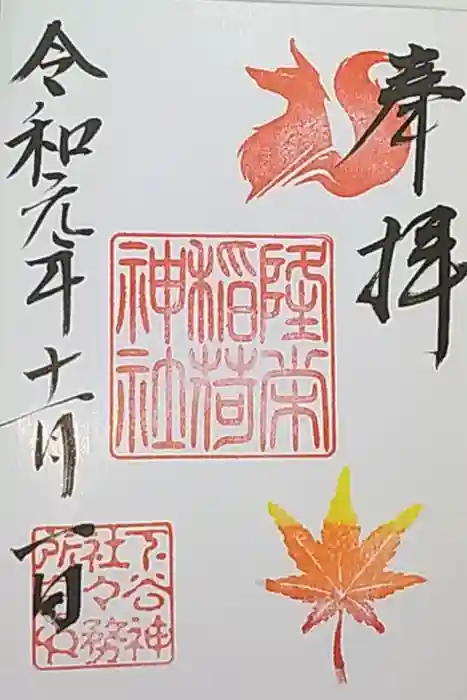 奉拝
隆栄
稲荷
神社
令和元年十一月日
下谷神
社々務
所